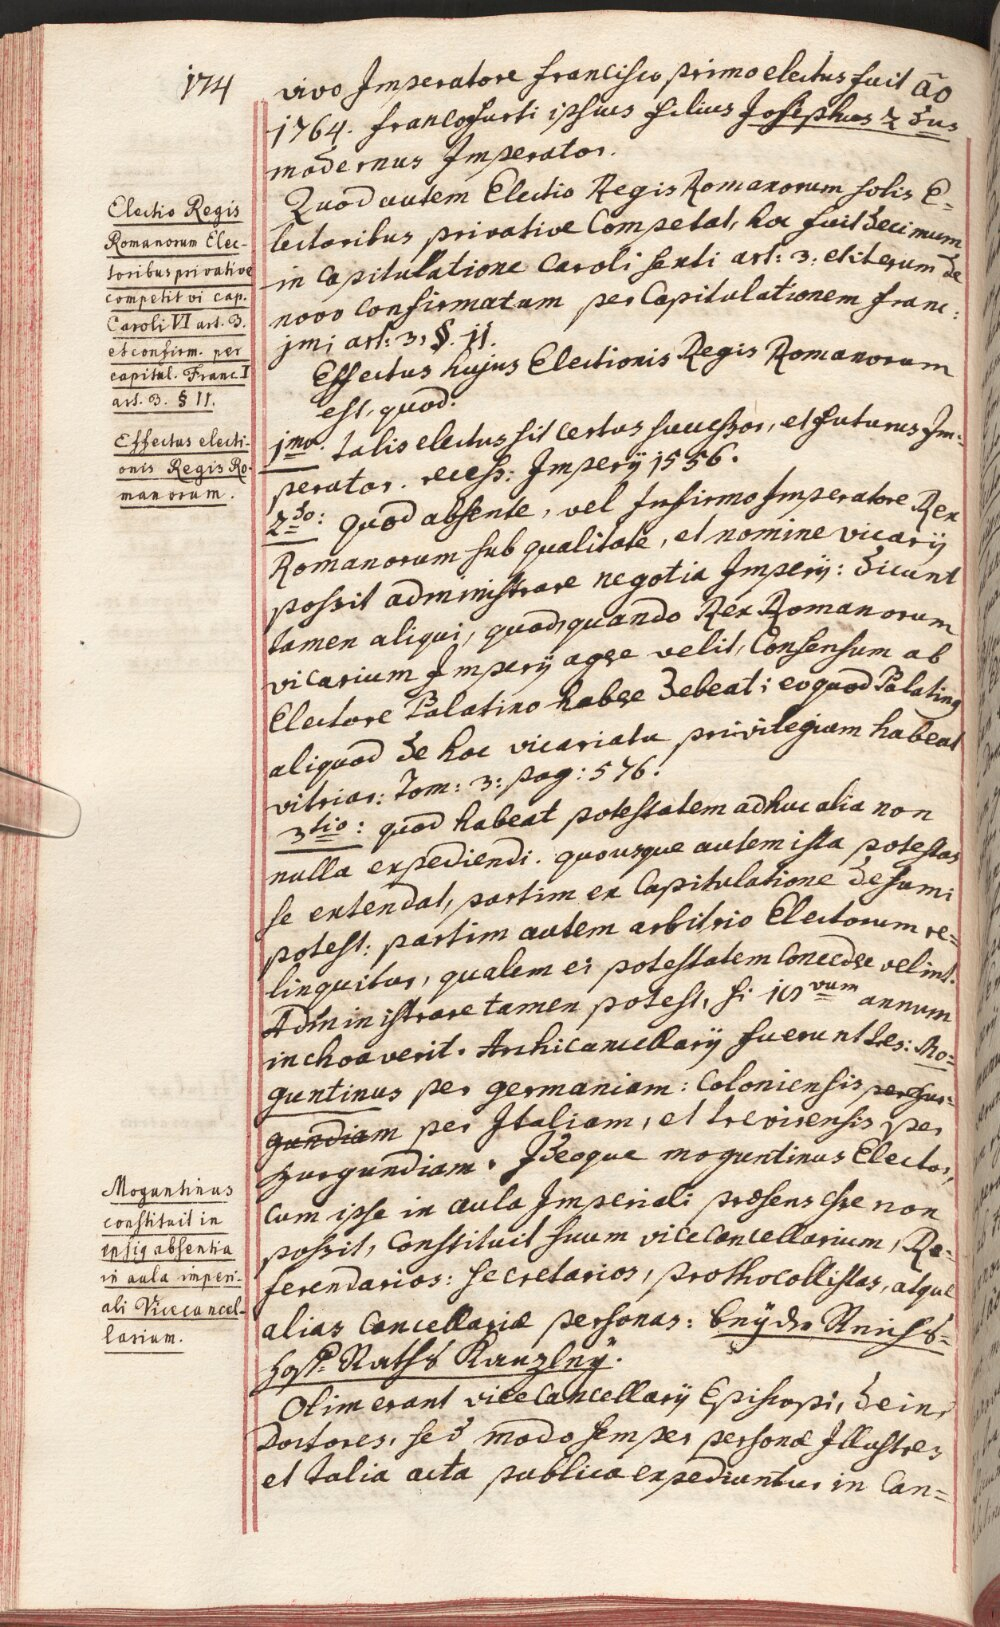 174
vivo Imperatore Francisco primo electus fuit ao
1764. Francofurti ipsius filius Josephus 2dus
modernus Imperator.
Electio Regis
Romanorum Elec-
toribus privative
competit vi cap.
Caroli VI art. 3.
et confirm. per
capitul. Franc. I
art. 3. § 11.
Quod autem Electio Regis Romanorum solis E=
lectoribus privative Competat, hoc fuit decimum
in Capitulatione Caroli sexti art: 3, et iterum de
novo Confirmatum per Capitulationem Franc:
jmi art: 3, §. 11.
Effectus electi-
onis Regis Ro-
manorum.
Effectus hujus Electionis Regis Romanorum
est, quod:
jmo. talis electus sit certus successor, et futurus Im=
perator. recess: Imperÿ 1556.
2do: quod absente, vel Infirmo Imperatore Rex
Romanorum sub qualitate, et nomine vicarÿ
possit administrare negotia Imperÿ: dicunt
tamen aliqui, quod, quando Rex Romanorum
vicarium Imperÿ agere velit, Consensum ab
Electore Palatino habere debeat; eo quod Palatinus
aliquod de hoc vicariatu privilegium habeat
vitriar: Tom: 3: pag: 576.
3tio: quod habeat potestatem adhuc alia non
nulla expediendi. quousque autem ista potestas
se extendat, partim ex Capitulatione desumi
potest: partim autem arbitrio Electorum re=
linquitur, qualem ei potestatem Concedere velint.
Administrare tamen potest, si 18vum annum
inchoaverit. Archicancellarÿ fuerunt tres: Mo=
guntinus per germaniam: Coloniensis per Bur=
gundiam per Italiam, et trevirensis per
Burgundiam. Ideoque moguntinus Elector,
Moguntinus
constituit in
ipsius absentia
in aula imperi-
ali Vicecancel-
larium.
cum ipse in aula Imperiali præsens esse non
possit, Constituit suum viceCancellarium, Re=
ferendarios: secretarios, prothocollistas, atque
alias Cancellariæ personas: beÿ der Reichs=
hoff Raths Kanzleÿ.
Olim erant viceCancellarÿ Episcopi, dein
Doctores, sed modo semper personæ Illustres
et talia acta publica expediuntur in Can=